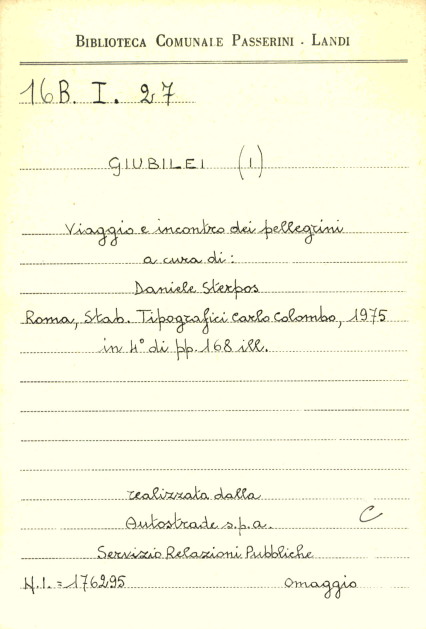 BIBLIOTECA COMUNALE PASSERINI - LANDI
16B. I. 27
GIUBILEI (I)
Viaggio e incontro dei pellegrini
a cura di:
Daniele Sterpos
Roma, Stab. Tipografici Carlo Colombo, 1975
in 4° di pp. 168 ill.
realizzata dalla
Autostrade s.p.a.
C
Servizio Relazioni Pubbliche
N.I. = 176295 Omaggio